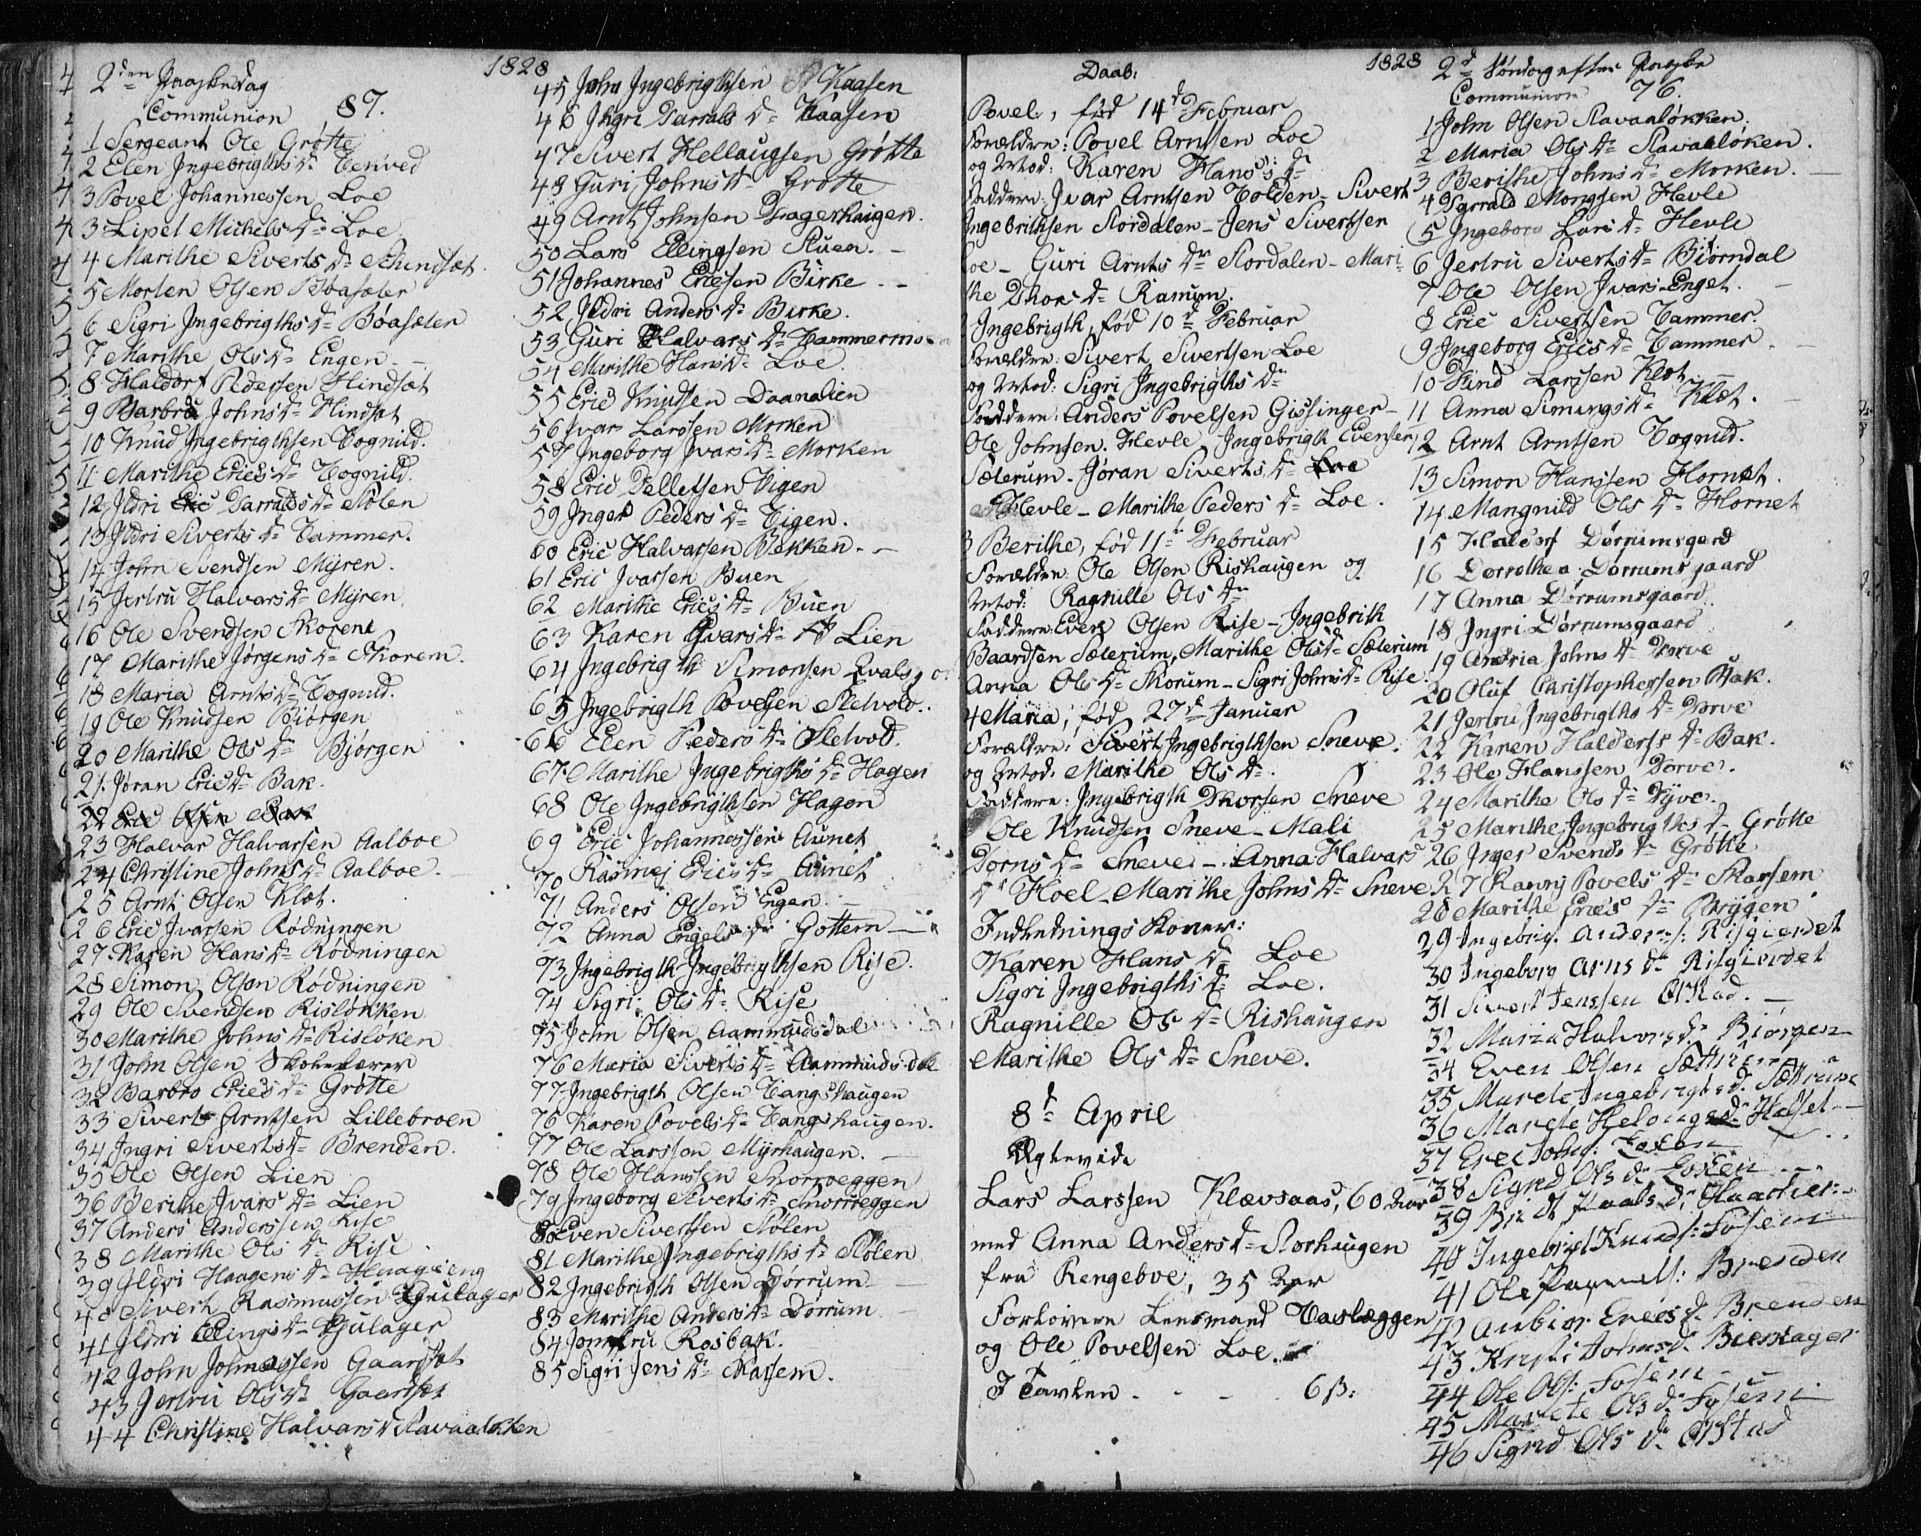 1828
2den Paaskedag
Communion 87.
1 Sergeant Ole Grøtte
2 Elen Ingebrigths Dr
3 Povel Johannessen Loe
3 Lipel Michels Dr Loe
4 Marithe Siverts Dr
5 Morten Olsen Boasæter
6 Sigri Ingebrigths Dr Bøasæter
7 Marithe Ols Dr Engen
8 Haldor Pedersen Hindsæt
9 Barbru Johns Dr Hindsæt
10 Knud Ingebrigthsen Tognild.
11 Marithe Erics Dr Tognild
12 Ildri Tarralds Dr Stølen
13 Ildri Siverts Dr Tammer.
14 John Svendsen Myren.
15 Jertru Halvars Dr Myren
16 Ole Svendsen Skorem
17 Marithe Jørgens Dr Skorem.
18 Maria Arnts Dr Tognild.
19 Ole Knudsen Biørgen
20 Marithe Ols Dr Bjørgen
21 Jøran Erics Dr Bak.
22 Eric Olsen Bak
23 Halvar Halvarsen Aalboe
24 Christine Johns Dr Aalboe.
25 Arnt Olsen Klæt.
26 Eric Ivarsen Rødningen
27 Karen Hans Dr Rødningen
28 Simon Olson Rødningen
29 Ole Svendsen Risløkken
30 Marithe Johns Dr Risløken
31 John Olsen Skolelærer
32 Barbro Erics Dr Grøtte
33 Sivert Arntsen Lillebroen
34 Ingri Siverts Dr Brenden.
35 Ole Olsen Lien
36 Berithe Ivars Dr Lien
37 Anders Anderssen Rise
38 Marithe Ols Dr Rise
39 Ildri Haagens Dr Haagaeng
40 Sivert Rasmussen Gulager
41 Ildri Ellings Dr Gulager
42 John Johnssen Gaardsæt
43 Jertru Ols Dr Gaardset
44 Christine Halvars Dr Ravaaløkken
45 John Ingebrigthsen Kaasen
46 Ingri Tarralds Dr Kaasen
47 Sivert Hellaugsen Grøtte
48 Guri Johns Dr Grøtte
49 Arnt Johnsen Fagerhaugen.
50 Lars Ellingsen Stuen.
51 Johannes Ericsen Birke
52 Ildri Anders Dr Birke.
53 Guri Halvars Dr Hammermoen
54 Marithe Hans Dr Loe.
55 Eric Knudsen Daanalien
56 Ivar Larssen Morken
57 Ingeborg Ivars Dr Morken
58 Eric Telletsen Vigen
59 Inger Peders Dr Vigen.
60 Eric Halvarsen Bekken.
61 Eric Ivarsen Buen
62 Marithe Erics Dr Buen
63 Karen Ivars Dr Lien
64 Ingebrigth Simonsen
65 Ingebrigth Povelsen Sletvold.
66 Elen Peders Dr Sletvold.
67 Marithe Ingebrigths Dr Hagen
68 Ole Ingebrigthsen Hagen
69 Eric Johannessen Aunet
70 Rasmej Erics Dr Aunet
71 Anders Olson Engen.
72 Anna Engels Dr Gottem
73 Ingebrigth Ingebrigthsen Rise.
74 Sigri Ols Dr Rise
75 John Olsen Aammudsdal
76 Maria Siverts Dr Aammudsdal
77 Ingebrigth Olsen Vangshaugen
76 Karen Povels Dr Vangshaugen.
77 Ole Larsson Myrhaugen.
78 Ole Hanssen Snorroeggen
79 Ingeborg Siverts Dr Snorroeggen
80 Even Sivertsen Stølen
81 Marithe Ingebrigths Dr Stølen
82 Ingebrigth Olsen Dørrum
83 Marithe Anders Dr Dørrum
84 Jomfru Rosbak.
85 Sigri Jens Dr Karsem.
Daab. 1828
Povel, fød 14de Februar
Forældre: Povel Arntsen Loe
og Mod: Karen Hans's Dr
Faddere: Ivar Arntsen Tolden – Sivert
Ingebrithsen Stordalen – Jens Sivertsen
Loe – Guri Arnts Dr Stordalen – Mari-
the Thors Dr Ramum.
Ingebrigth, fød 10d Februar
Forældre: Sivert Sivertsen Loe
og Mod: Sigri Ingebrigths Dr
Faddere: Anders Povelsen Gissinger –
Ole Johnsen Hevle, Ingebrigth Evensen
Sæterum – Jøran Siverts Dr Loe
Hevle – Marithe Peders Dr Loe.
3 Berithe, fød 11te Februar
Forældre: Ole Olsen Rishaugen og
Mod: Ragnille Ols Dr
Faddere: Even Olsen Rise – Ingebrith
Baardsen Sæterum, Marithe Ols Dr Sæterum
Anna Ols Dr Skorum – Sigri Johns Dr Rise.
4 Maria, fød 27d Januar
Forældre: Sivert Ingebrigthsen Sneve.
og Mod: Marithe Ols Dr
Faddere: Ingebrigth Thorsen Sneve
Ole Knudsen Sneve – Mali
Torns Dr Sneve – Anna Halvars
Dr Hoel – Marithe Johns Dr Sneve
Indlednings Koner:
Karen Hans Dr Loe
Sigri Ingebrigths Dr Loe.
Ragnille Ols Dr Rishaugen
Marithe Ols Dr Sneve.
8d April
Ægtevide
Lars Larssen Klævsaas, 60 Aar
med Anna Anders Dr Storhaugen
fra Rengeboe, 35 Aar
Forlovere Lensmand Vaslæggen
og Ole Povelsen Loe.
I Tavlen - - - 6 ß:
2d Søndag efter Paaske
Communion 76.
1 John Olsen Ravaaløkken.
2 Maria Ols Dr Ravaaløken.
3 Berithe Johns Dr Morken.
4 Tarrald Mongsen Hevle
5 Ingeborg Lars Dr Hevle
6 Jertru Siverts Dr Biørndal
7 Ole Olsen Ivars Enget.
8 Eric Sivertsen Tammer.
9 Ingeborg Erics Dr Tammer.
10 Find Larssen Klæt.
11 Anna Simungs Dr Klæt.
12 Arnt Arntsen Tognild.
13 Simon Hansen Hornet.
14 Mangnild Ols Dr Hornet
15 Haldor Dørrumsgard
16 Dorrothea Dørrumsgaard
17 Anna Dørrumsgaard
18 Ingri Dørrumsgaard
19 Andria Johns Dr Dørve
20 Oluf Christophersen Bak.
21 Jertru Ingebrigths Dr Dørve
22 Karen Halders Dr Bak.
23 Ole Hanssen Dørve.
24 Marithe Ols Dr
25 Marithe Ingebrigths Dr Grøtte
26 Inger Svends Dr Grøtte
27 Ranni Povels Dr Karsem
28 Marithe Erics Dr Bryggen
29 Ingebrig. Anders: Risgierdet
30 Ingeborg Arns Dr Risgierdet
31 Sivert Jenssen Ølstad.
32 Maria Halvors Dr Biørgen
34 Even Olsen Sættrum
35 Marete Ingebrigts Dr Sættrum
36 Marete Helougs Dr Halset
37 Eric Johns: Foten
38 Sigrid Ols Dr
39 Paals Dr
40 Ingebrigt Knuds: Fosem
41 Ole Brenden
42 Erics Dr Brenden
43 Johns Dr
44 Ole Ols: Fosem
45 Marete Ols Dr Fosem
46 Sigrid Ols Dr Ølstad